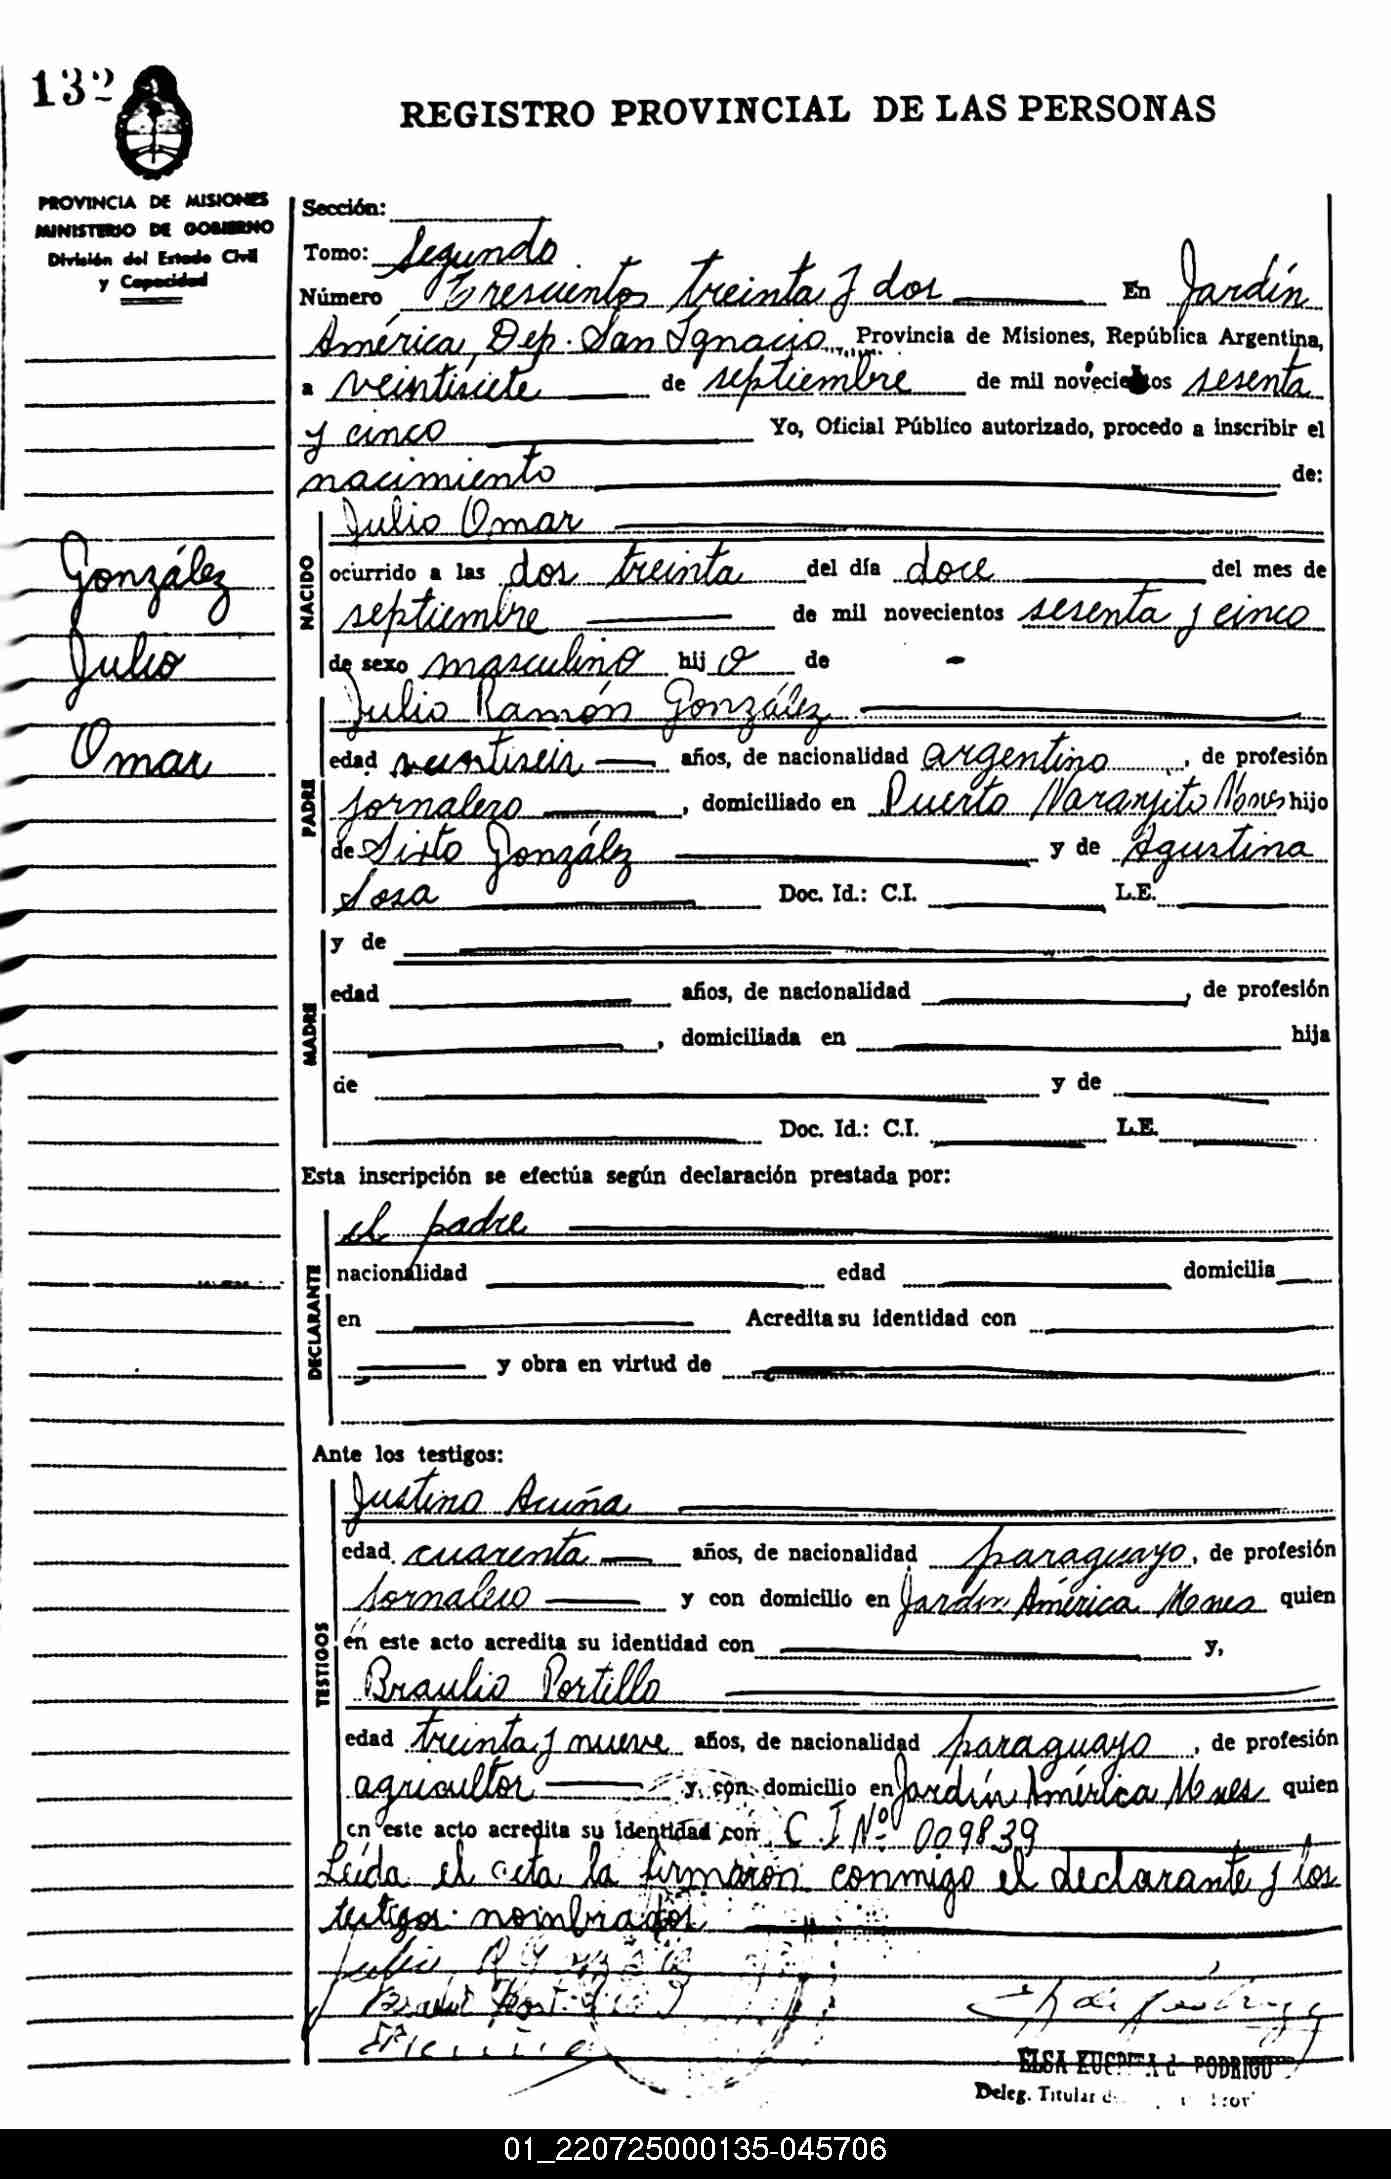 132
REGISTRO PROVINCIAL DE LAS PERSONAS
PROVINCIA DE MISIONES
MINISTERIO DE GOBIERNO
División del Estado Civil
y Capacidad
Sección:
Tomo: Segundo
Número Trescientos treinta y dos En Jardín
América, Dep. San Ignacio, Provincia de Misiones, República Argentina,
a veintisiete de septiembre de mil novecientos sesenta
y cinco Yo, Oficial Público autorizado, procedo a inscribir el
nacimiento de:
González
Julio
Omar
NACIDO
Julio Omar
ocurrido a las dos treinta del día doce del mes de
septiembre de mil novecientos sesenta y cinco
de sexo masculino hijo de
PADRE
Julio Ramón González
edad veintiseis años, de nacionalidad argentino, de profesión
jornalero, domiciliado en Puerto Naranjito Mnes hijo
de Sixto González y de Agustina
Sosa Doc. Id.: C.I. L.E.
MADRE
y de
edad años, de nacionalidad , de profesión
, domiciliada en hija
de y de
Doc. Id.: C.I. L.E.
Esta inscripción se efectúa según declaración prestada por:
DECLARANTE
el padre
nacionalidad edad domicilia
en Acredita su identidad con
y obra en virtud de
Ante los testigos:
TESTIGOS
Justino Acuña
edad cuarenta años, de nacionalidad paraguayo, de profesión
jornalero y con domicilio en Jardín América Mnes quien
en este acto acredita su identidad con y,
Braulio Portillo
edad treinta y nueve años, de nacionalidad paraguayo, de profesión
agricultor y con domicilio en Jardín América Mnes quien
en este acto acredita su identidad con C I Nº 009839
Leída el acta la firmaron conmigo el declarante y los
testigos nombrados
Julio R
ELSA
Deleg. Titular
01_220725000135-045706